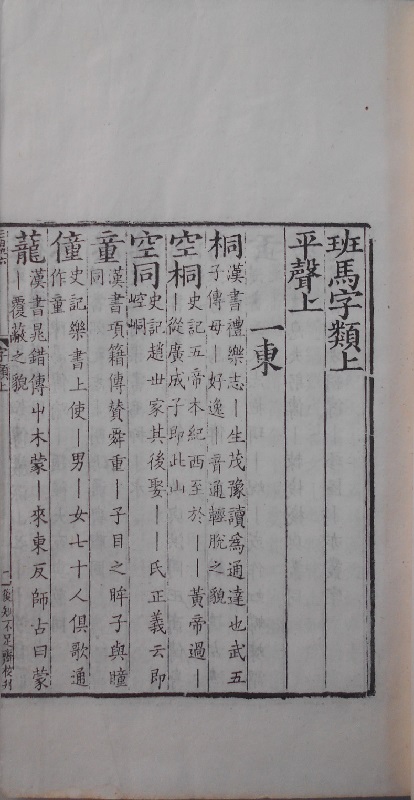 班馬字類上
平聲上
一東
桐漢書禮樂志｜生茂豫讀爲通達也武五
子傳毋｜好逸｜音通輕脫之貌
空桐史記五帝本紀西至於｜｜黃帝過｜
｜從廣成子即此山
空同史記趙世家其後娶｜｜氏正義云即
崆峒
童漢書項籍傳贊舜重｜子目之眸子與瞳
同
僮史記樂書上使｜男｜女七十人俱歌通
作童
蘢漢書晁錯傳屮木蒙｜來東反師古曰蒙
｜覆蔽之貌
字類上
知不足齋校刊